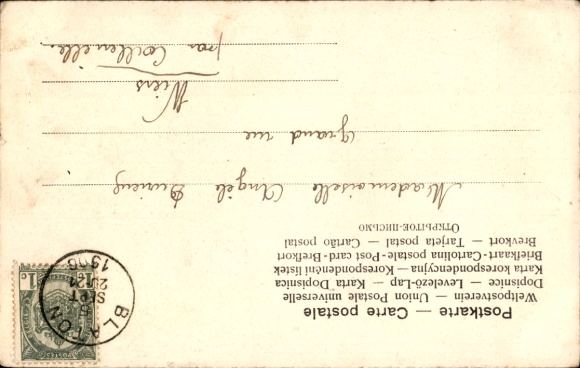 Postkarte — Carte postale
Weltpostverein — Union Postale universelle
Dopisnice — Levelező-Lap — Karta Dopisnica
Karta korespondencyjna — Korespondenční lístek
Briefkaart - Cartolina postale - Post card - Brefkort
Brevkort — Tarjeta postal — Cartão postal
Открытое-письмо
BLATON
6
SEPT
21-21
1906
1c
Mademoiselle Angèle
Grand rue
Wiers
par Callenelle.